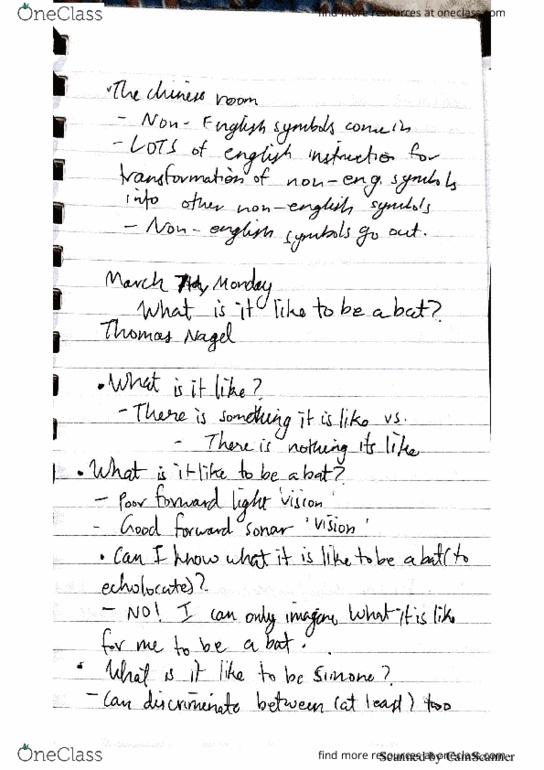 OneClass
find more resources at oneclass.com
• The chinese room
- Non-English symbols come in
- LOTS of english instruction for
transformation of non-eng. symbols
into other non-english symbols
- Non-english symbols go out.
March 7th, Monday
What is it like to be a bat?
Thomas Nagel
• What is it like?
- There is something it is like vs.
- There is nothing its like
• What is it like to be a bat?
- Poor forward light 'vision'
- Good forward sonar 'vision'
• Can I know what it is like to be a bat (to
echolocate)?
- NO! I can only imagine what it is like
for me to be a bat.
• What is it like to be Simone?
- Can discriminate between (at least) too
OneClass
find more resources at oneclass.com
Scanned by CamScanner